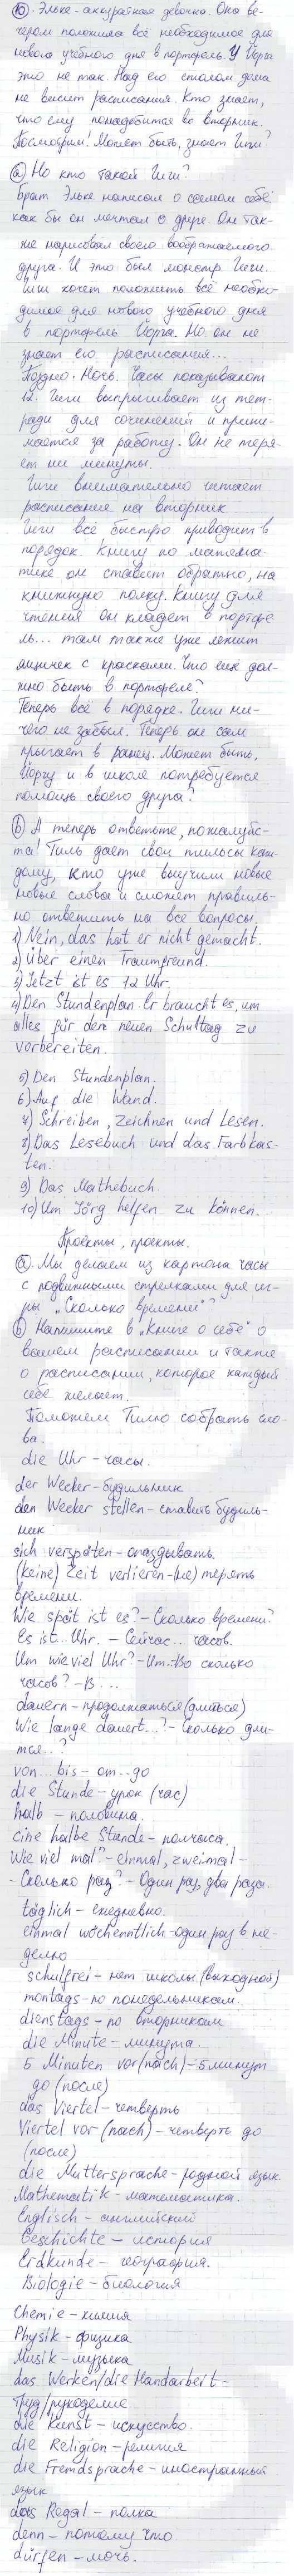 10. Эльке - аккуратная девочка. Она ве-
чером положила всё необходимое для
нового учебного дня в портфель. У Йорга
это не так. Над его столом дома
не висит расписания. Кто знает,
что ему понадобится во вторник.
Посмотрим! Может быть, знает Гиги?
a) Но кто такой Гиги?
Брат Эльке написал о самом себе
как бы он мечтал о друге. Он так-
же нарисовал своего воображаемого
друга. И это был монстр Гиги.
Гиги хочет положить всё необхо-
димое для нового учебного дня
в портфель Йорга. Но он не
знает его расписания...
Поздно. Ночь. Часы показывают
12. Гиги выпрыгивает из тет-
ради для сочинений и прини-
мается за работу. Он не теря-
ет ни минуты.
Гиги внимательно читает
расписание на вторник
Гиги всё быстро приводит в
порядок. Книгу по матема-
тике он ставит обратно, на
книжную полку. Книгу для
чтения он кладет в портфе
ль... там также уже лежит
ящичек с красками. Что ещё дол-
жно быть в портфеле?
Теперь всё в порядке. Гиги ни-
чего не забыл. Теперь он сам
прыгает в ранец. Может быть,
Йоргу и в школе потребуется
помощь своего друга?
b) А теперь ответьте, пожалуйс-
та! Тиль дает свои пильсы каж-
дому, кто уже выучил новые
новые слова и сможет правиль-
но ответить на все вопросы.
1) Nein, das hat er nicht gemacht.
2) Über einen Traumfreund.
3) Jetzt ist es 12 Uhr.
4) Den Stundenplan. Er braucht es, um
alles für den neuen Schultag zu
vorbereiten.
5) Den Stundenplan.
6) Auf die Wand.
7) Schreiben, Zeichnen und Lesen.
8) Das Lesebuch und das Farbkas-
ten.
9) Das Mathebuch.
10) Um Jörg helfen zu können.
Проекты, проекты.
a) Мы делаем из картона часы
с подвижными стрелками для иг-
ры „Сколько времени"?
b) Напишите в „Книге о себе" о
вашем расписании и также
о расписании, которое каждый
себе желает.
Поможем Тилю собрать сло-
ва.
die Uhr - часы.
der Wecker - будильник
den Wecker stellen - ставить будиль-
ник
sich verspäten - опаздывать.
(keine) Zeit verlieren - (не) терять
времени.
Wie spät ist es? - Сколько времени?
Es ist... Uhr. - Сейчас... часов.
Um wie viel Uhr? - Um... - Во сколько
часов? - В ...
dauern - продолжаться (длиться)
Wie lange dauert...? - Сколько дли-
тся...?
von... bis - от... до
die Stunde - урок (час)
halb - половина.
eine halbe Stunde - полчаса.
Wie viel mal? - einmal, zweimal -
- Сколько раз? - Один раз, два раза.
täglich - ежедневно.
einmal wöchenntlich - один раз в не-
делю
schulfrei - нет школы (выходной)
montags - по понедельникам.
dienstags - по вторникам
die Minute - минута.
5 Minuten vor (nach) - 5 минут
до (после)
das Viertel - четверть
Viertel vor (nach) - четверть до
(после)
die Muttersprache - родной язык.
Mathematik - математика.
Englisch - английский
Geschichte - история
Erdkunde - география.
Biologie - биология
Chemie - химия
Physik - физика
Musik - музыка
das Werken/die Handarbeit -
труд/рукоделие.
die Kunst - искусство.
die Religion - религия
die Fremdsprache - иностранный
язык
das Regal - полка
denn - потому что
dürfen - мочь.